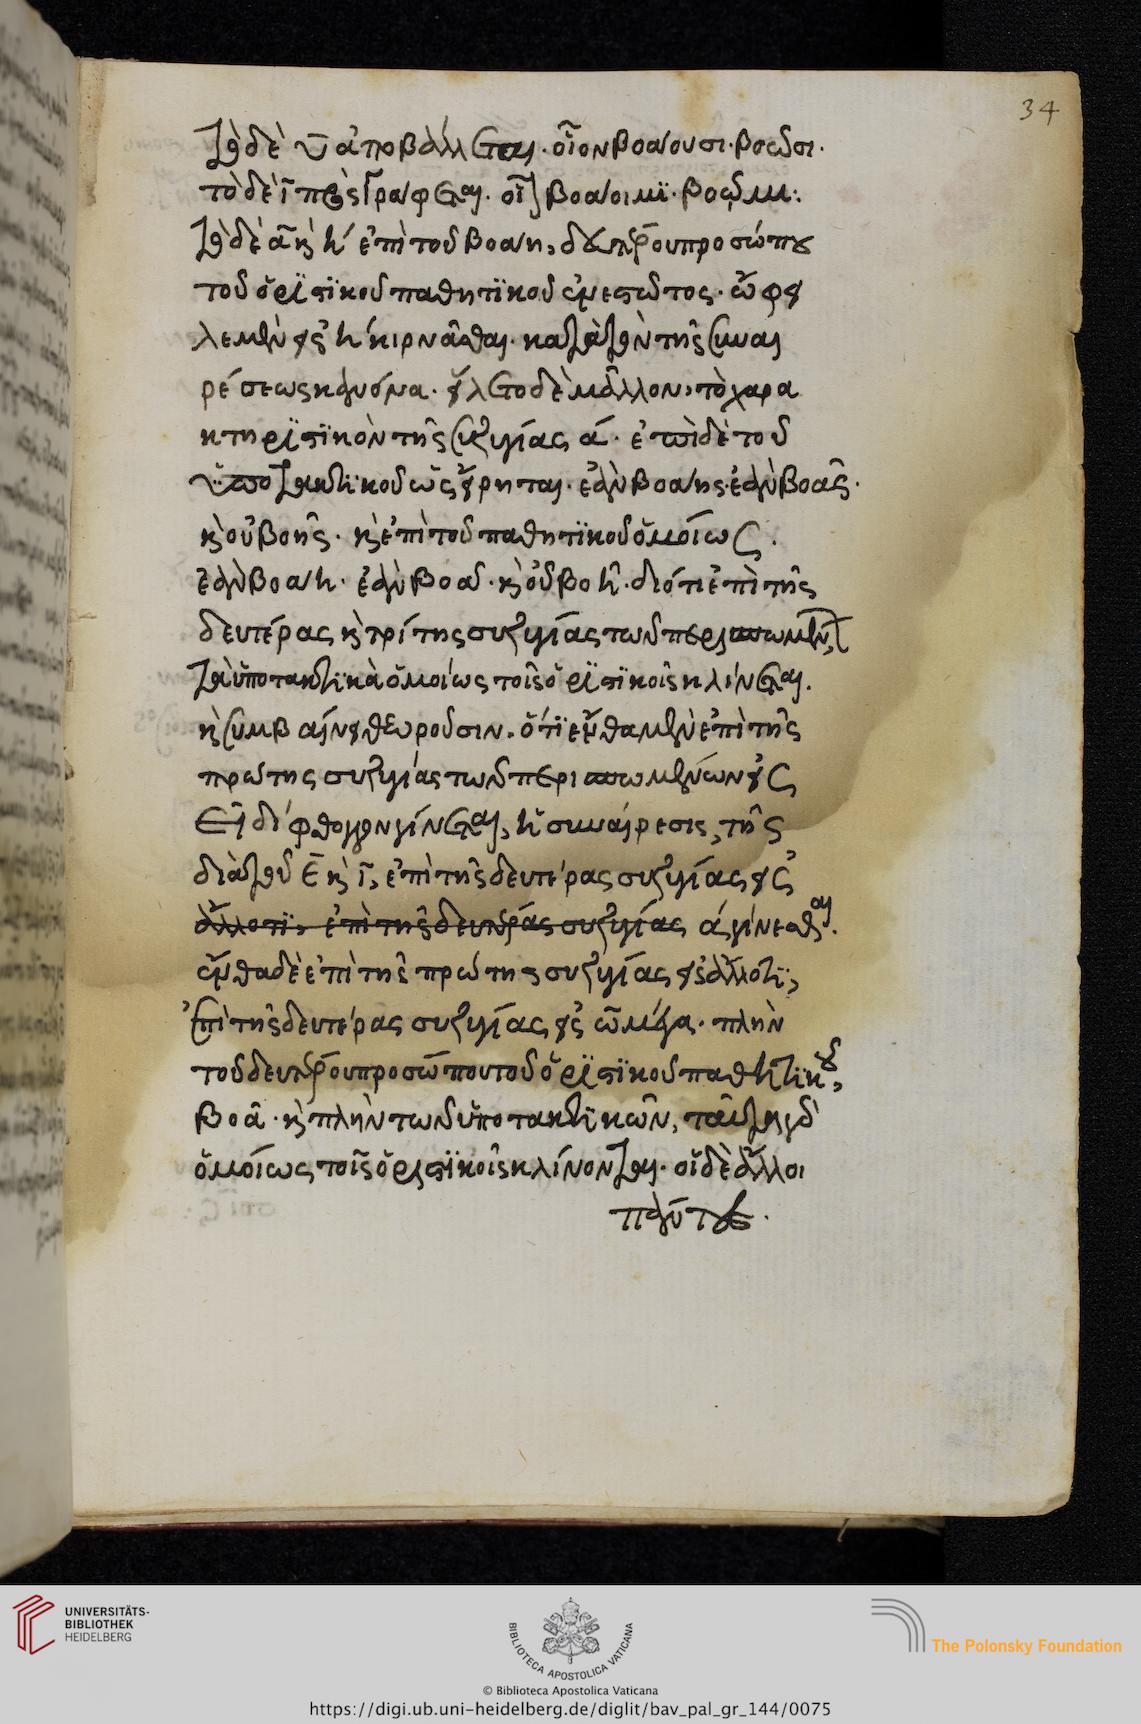 34
τὸ δὲ ῡ ἀποβάλλεται· οἷον βοάουσι· βοῶσι·
τὸ δὲ ῑ προσγράφεται· οἷον βοάοιμι· βοῷμι:
τὸ δὲ ᾱ κὴ ἐπὶ τοῦ βοάη, δευτέρου προσώπου
τοῦ ὁριστικοῦ παθητικοῦ ἐνεστῶτος· ὤφει
λεμὲν εἰς η κιρνᾶσθαι· κατὰ τὸν τῆς συναι
ρέσεως κανόνα· εἵλετο δὲ μᾶλλον, τὸ χαρα
κτηριστικὸν τῆς συζυγίας ᾱ· ἐπὶ δὲ τοῦ
ὑποτακτικοῦ ὡς εἴρηται· ἐὰν βοάης· ἐὰν βοᾶς·
κ οὐ βοῆς· κ ἐπὶ τοῦ παθητικοῦ ὁμοίως·
ἐὰν βοάη· ἐὰν βοᾶ· κ οὐ βοῆ· διότι ἐπὶ τῆς
δευτέρας κ τρίτης συζυγίας τῶν περισπωμένων,
τὰ ὑποτακτικὰ ὁμοίως τοῖς ὁριστικοῖς κλίνεται.
κ συμβαίνει θεωροῦσιν· ὅτι ἔνθα μὲν ἐπὶ τῆς
πρώτης συζυγίας τῶν περισπωμένων εἰς
ει δίφθογγον γίνεται, ἡ συναίρεσις, τῆς
διὰ τοῦ ε̄ κ ῑ, ἐπὶ τῆς δευτέρας συζυγίας εἰς
ἄλλοτι, ἐπὶ τῆς δευτέρας συζυγίας ᾱ γίνεσθαι.
ἔνθα δὲ ἐπὶ τῆς πρώτης συζυγίας εἰς ἄλλοτι,
ἐπὶ τῆς δευτέρας συζυγίας εἰς ω μέγα· πλὴν
τοῦ δευτέρου προσώπου τοῦ ὁριστικοῦ παθητικοῦ,
βοᾶ· κ πλὴν τῶν ὑποτακτικῶν, ταῦτα γὰρ
ὁμοίως τοῖς ὁριστικοῖς κλίνονται· οἱ δὲ ἄλλοι
πάντες·
UNIVERSITÄTS-
BIBLIOTHEK
HEIDELBERG
BIBLIOTECA APOSTOLICA VATICANA
The Polonsky Foundation
© Biblioteca Apostolica Vaticana
https://digi.ub.uni-heidelberg.de/diglit/bav_pal_gr_144/0075